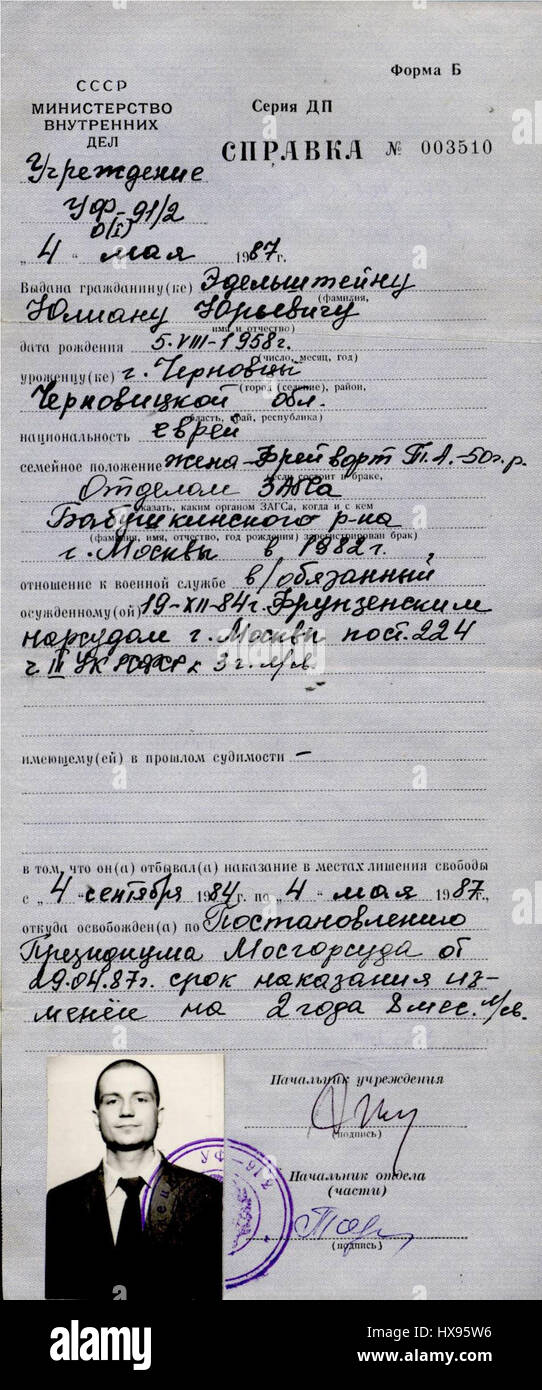 Форма Б
СССР
МИНИСТЕРСТВО
ВНУТРЕННИХ
ДЕЛ
Серия ДП
СПРАВКА № 003510
Учреждение
УФ-91/2
„4“ мая 1987г.
Выдана гражданину(ке) Эдельштейну
(фамилия,
Юлиану Юрьевичу
имя и отчество)
дата рождения 5.VIII-1958г.
(число, месяц, год)
уроженцу(ке) г. Черновцы
(город (селение), район,
Черновицкой обл.
область, край, республика)
национальность еврей
семейное положение жена-Фрейворт Т.А.-50г.р.
(если состоит в браке,
Отделом ЗАГСа
указать, каким органом ЗАГСа, когда и с кем
Бабушкинского р-на
(фамилия, имя, отчество, год рождения) зарегистрирован брак)
г. Москвы в 1982г.,
отношение к военной службе в/обязанный
осужденному(ой) 19-XII-84г. Фрунзенским
нарсудом г. Москвы по ст. 224
ч III УК РСФСР к 3 г. л/св.
имеющему(ей) в прошлом судимости –
в том, что он(а) отбывал(а) наказание в местах лишения свободы
с „4“ сентября 1984г. по „4“ мая 1987г.,
откуда освобожден(а) по Постановлению
Президиума Мосгорсуда от
29.04.87г. срок наказания из-
менён на 2 года 8 мес. л/св.
Начальник учреждения
(подпись)
Начальник отдела
(части)
(подпись)
alamy
Image ID: HX95W6
www.alamy.com